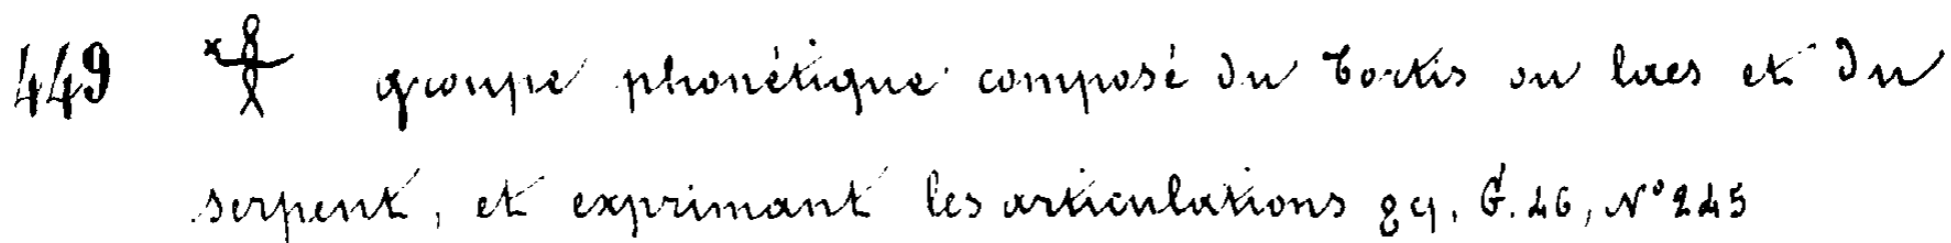 449 groupe phonétique composé du tortis ou lacs et du
serpent, et exprimant les articulations ϩϥ, G. 46, N° 245